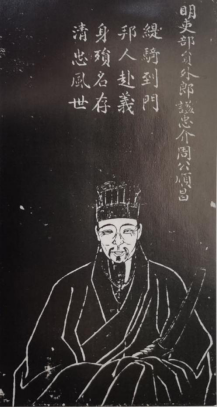 明吏部員外郎謚忠介周公順昌
緹騎到門
邦人赴義
身殞名存
清忠風世